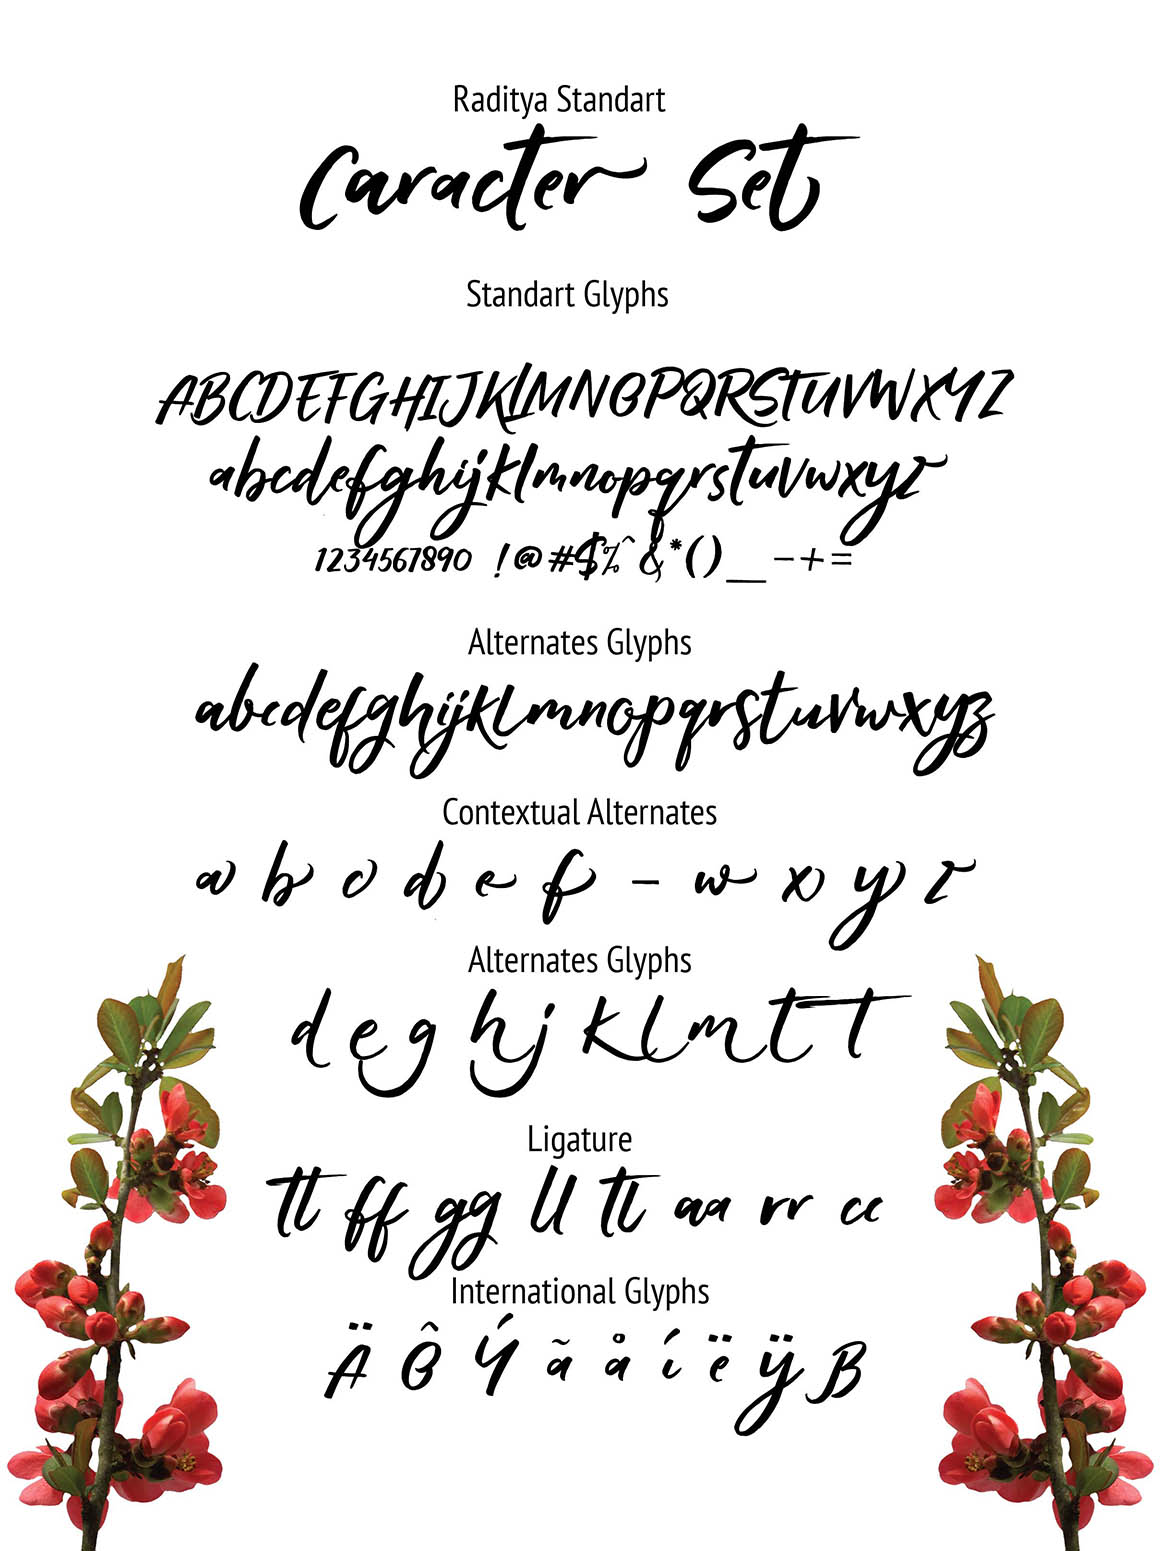 Raditya Standart
Caracter Set
Standart Glyphs
ABCDEFGHIJKLMNOPQRSTUVWXYZ
abcdefghijklmnopqrstuvwxyz
1234567890 !@#$%^&*()_-+=
Alternates Glyphs
abcdefghijklmnopqrstuvwxyz
Contextual Alternates
a b c d e f - w x y z
Alternates Glyphs
d e g h j k l m t t
Ligature
tt ff gg ll tl aa rr cc
International Glyphs
Ä Ô Ý ã å í ë ÿ ß